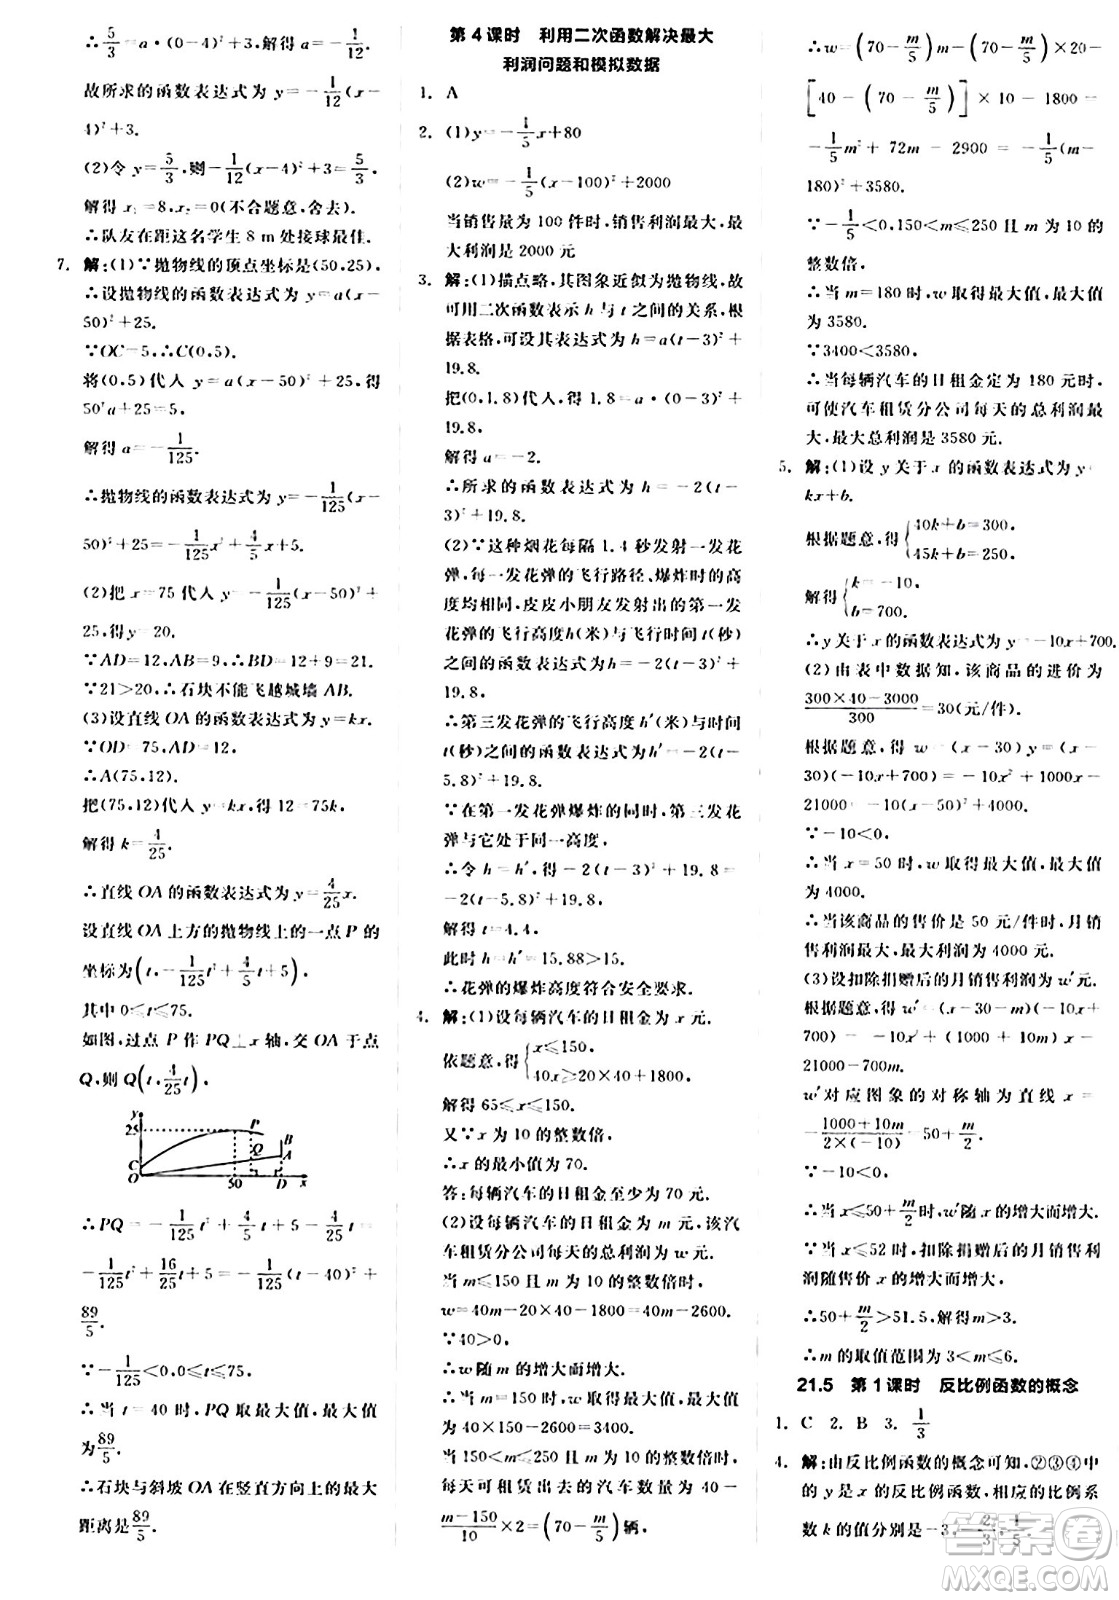 ∴5/3=a·(0-4)²+3,解得 a=-1/12.
故所求的函数表达式为 y=-1/12(x-
4)²+3.
(2)令 y=5/3,则-1/12(x-4)²+3=5/3,
解得 x₁=8,x₂=0(不合题意,舍去).
∴队友在距这名学生 8 m 处接球最佳.
7. 解:(1)∵抛物线的顶点坐标是(50,25),
∴设抛物线的函数表达式为 y=a(x-
50)²+25.
∵OC=5,∴C(0,5).
将(0,5)代入 y=a(x-50)²+25,得
50²a+25=5,
解得 a=-1/125.
∴抛物线的函数表达式为 y=-1/125(x-
50)²+25=-1/125x²+4/5x+5.
(2)把 x=75代入 y=-1/125(x-50)²+
25,得 y=20.
∵AD=12,AB=9,∴BD=12+9=21.
∵21>20,∴石块不能飞越城墙 AB.
(3)设直线 OA 的函数表达式为 y=kx.
∵OD=75,AD=12,
∴A(75,12).
把(75,12)代入 y=kx,得 12=75k,
解得 k=4/25.
∴直线 OA 的函数表达式为 y=4/25x.
设直线 OA 上方的抛物线上的一点 P 的
坐标为(t,-1/125t²+4/5t+5),
其中 0≤t≤75.
如图,过点 P 作 PQ⊥x 轴,交 OA 于点
Q,则 Q(t,4/25t)
y
25
P
B
Q
A
C
O
50
D
x
∴PQ=-1/125t²+4/5t+5-4/25t=
-1/125t²+16/25t+5=-1/125(t-40)²+
89/5.
∵-1/125<0,0≤t≤75,
∴当 t=40 时,PQ取最大值,最大值
为89/5.
∴石块与斜坡 OA 在竖直方向上的最大
距离是89/5.
第 4 课时 利用二次函数解决最大
利润问题和模拟数据
1. A
2. (1)y=-1/5x+80
(2)w=-1/5(x-100)²+2000
当销售量为 100 件时,销售利润最大,最
大利润是 2000 元
3. 解:(1)描点略,其图象近似为抛物线,故
可用二次函数表示 h 与 t 之间的关系,根
据表格,可设其表达式为 h=a(t-3)²+
19.8.
把(0,1.8)代入,得 1.8=a·(0-3)²+
19.8,
解得 a=-2.
∴所求的函数表达式为 h=-2(t-
3)²+19.8.
(2)∵这种烟花每隔 1.4 秒发射一发花
弹,每一发花弹的飞行路径、爆炸时的高
度均相同,皮皮小朋友发射出的第一发
花弹的飞行高度h(米)与飞行时间 t(秒)
之间的函数表达式为 h=-2(t-3)²+
19.8,
∴第三发花弹的飞行高度 h′(米)与时间
t(秒)之间的函数表达式为 h′=-2(t-
5.8)²+19.8.
∵在第一发花弹爆炸的同时,第三发花
弹与它处于同一高度,
∴令 h=h′,得-2(t-3)²+19.8=
-2(t-5.8)²+19.8,
解得 t=4.4,
此时 h=h′=15.88>15.
∴花弹的爆炸高度符合安全要求.
4. 解:(1)设每辆汽车的日租金为 x 元.
依题意,得{x≤150,
40x≥20×40+1800,
解得 65≤x≤150.
又∵x 为 10 的整数倍,
∴x 的最小值为 70.
答:每辆汽车的日租金至少为 70 元.
(2)设每辆汽车的日租金为 m 元,该汽
车租赁分公司每天的总利润为 w 元.
当 m≤150 且 m 为 10 的整数倍时,
w=40m-20×40-1800=40m-2600.
∵40>0,
∴w随 m 的增大而增大,
∴当 m=150 时,w 取得最大值,最大值为
40×150-2600=3400.
当 150<m≤250 且 m 为 10 的整数倍时,
每天可租出的汽车的数量为 40-
(m-150)/10×2=(70-m/5)辆,
∴w=m(70-m/5)-(70-m/5)×20-
[40-(70-m/5)]×10-1800=
-1/5m²+72m-2900=-1/5(m-
180)²+3580.
∵-1/5<0,150<m≤250 且 m 为 10 的
整数倍,
∴当 m=180 时,w 取得最大值,最大值
为 3580.
∵3400<3580,
∴当每辆汽车的日租金定为 180 元时,
可使汽车租赁分公司每天的总利润最
大,最大总利润是 3580 元.
5. 解:(1)设 y 关于 x 的函数表达式为 y=
kx+b.
根据题意,得{40k+b=300,
45k+b=250,
解得{k=-10,
b=700.
∴y 关于 x 的函数表达式为 y=-10x+700.
(2)由表中数据知,该商品的进价为
(300×40-3000)/300=30(元/件),
根据题意,得 w=(x-30)y=(x-
30)(-10x+700)=-10x²+1000x-
21000=-10(x-50)²+4000.
∵-10<0,
∴当 x=50 时,w 取得最大值,最大值
为 4000.
∴当该商品的售价是 50 元/件时,月销
售利润最大,最大利润为 4000 元.
(3)设扣除捐赠后的月销售利润为 w′元.
根据题意,得 w′=(x-30-m)(-10x+
700)=-10x²+(1000+10m)x-
21000-700m.
w′对应图象的对称轴为直线 x=
-(1000+10m)/(2×(-10))=50+m/2.
∵-10<0,
∴当 x≤50+m/2时,w′随 x 的增大而增大.
∵当 x≤52 时,扣除捐赠后的月销售利
润随售价 x 的增大而增大,
∴50+m/2>51.5,解得 m>3,
∴m 的取值范围为 3<m≤6.
21.5 第 1 课时 反比例函数的概念
1. C 2. B 3. 1/3
4. 解:由反比例函数的概念可知,②③④中
的 y 是 x 的反比例函数,相应的比例系
数 k 的值分别是-3,-2/3,1/5.
答案圈
MXQE.COM